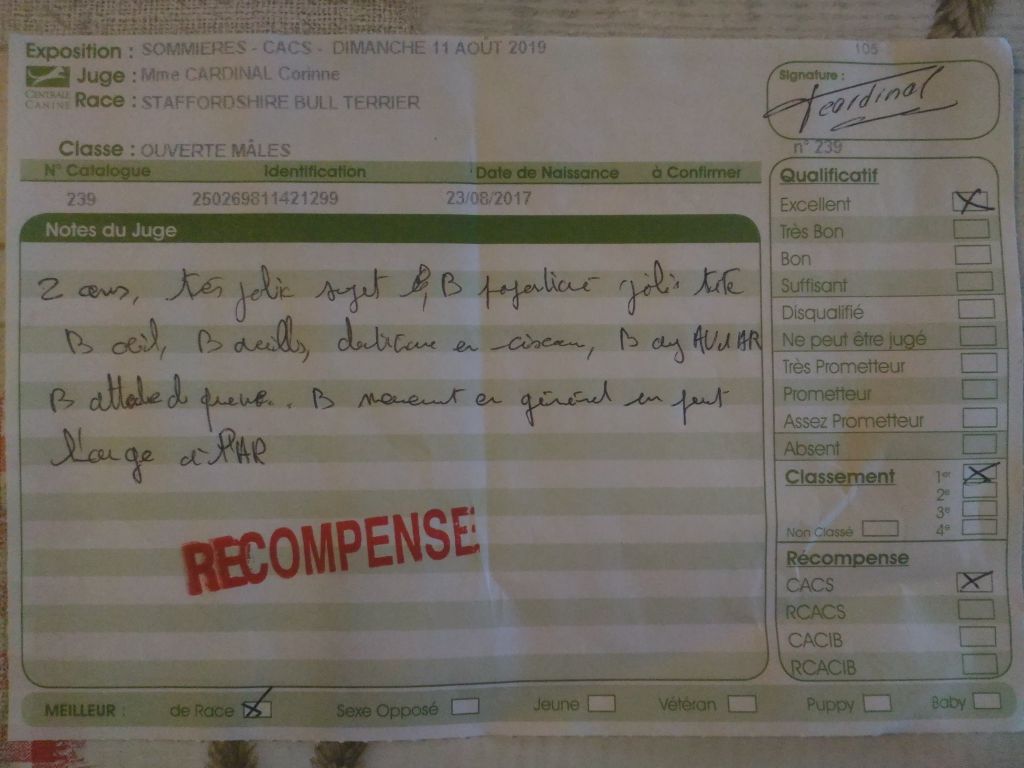 Exposition : SOMMIERES - CACS - DIMANCHE 11 AOUT 2019
105
CENTRALE CANINE
Juge : Mme CARDINAL Corinne
Race : STAFFORDSHIRE BULL TERRIER
Classe : OUVERTE MÂLES
N° Catalogue Identification Date de Naissance à Confirmer
239 250269811421299 23/08/2017
Notes du Juge
2 ans, très jolie sujet B, B jolie tête
B œil, B oreilles, denture en ciseau, B AV et AR
B attache de B mouvement en général un peu
large à l'AR
RECOMPENSE
Signature :
cardinal
n° 239
Qualificatif
Excellent
Très Bon
Bon
Suffisant
Disqualifié
Ne peut être jugé
Très Prometteur
Prometteur
Assez Prometteur
Absent
Classement 1er
2e
3e
Non Classé 4e
Récompense
CACS
RCACS
CACIB
RCACIB
MEILLEUR : de Race Sexe Opposé Jeune Vétéran Puppy Baby